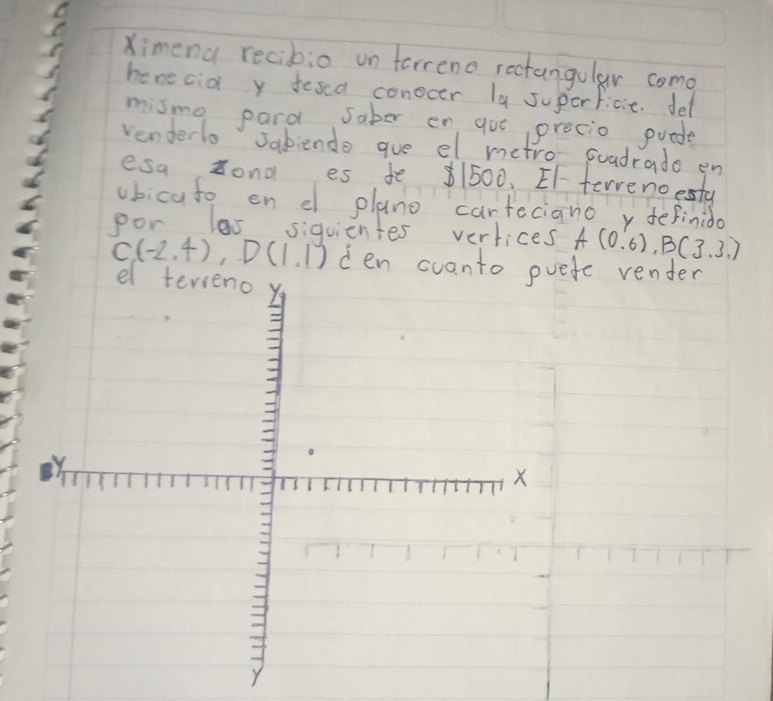 Ximena recibio un terreno rectangular como
henecia y desea conocer la superficie. del
mismo para saber en que precio puede
venderlo sabiendo que el metro cuadrado en
esa zona es de $1500. El terreno esta
ubicado en el plano carteciano y definido
por los siguientes vertices A (0.6), B(3.3.)
C(-2.4), D(1.1) ¿en cuanto puede vender
el terreno
Y
Y
X
Y